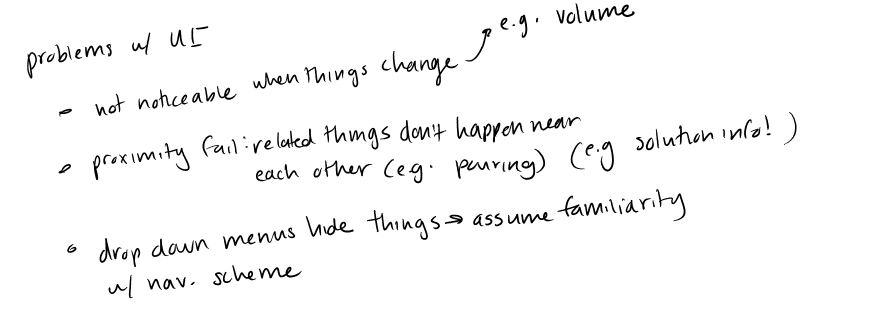 problems w/ UI
- not noticeable when things change → e.g. volume
• proximity fail: related things don't happen near
each other (e.g. pouring) (e.g solution info!)
• drop down menus hide things → assume familiarity
w/ nav. scheme